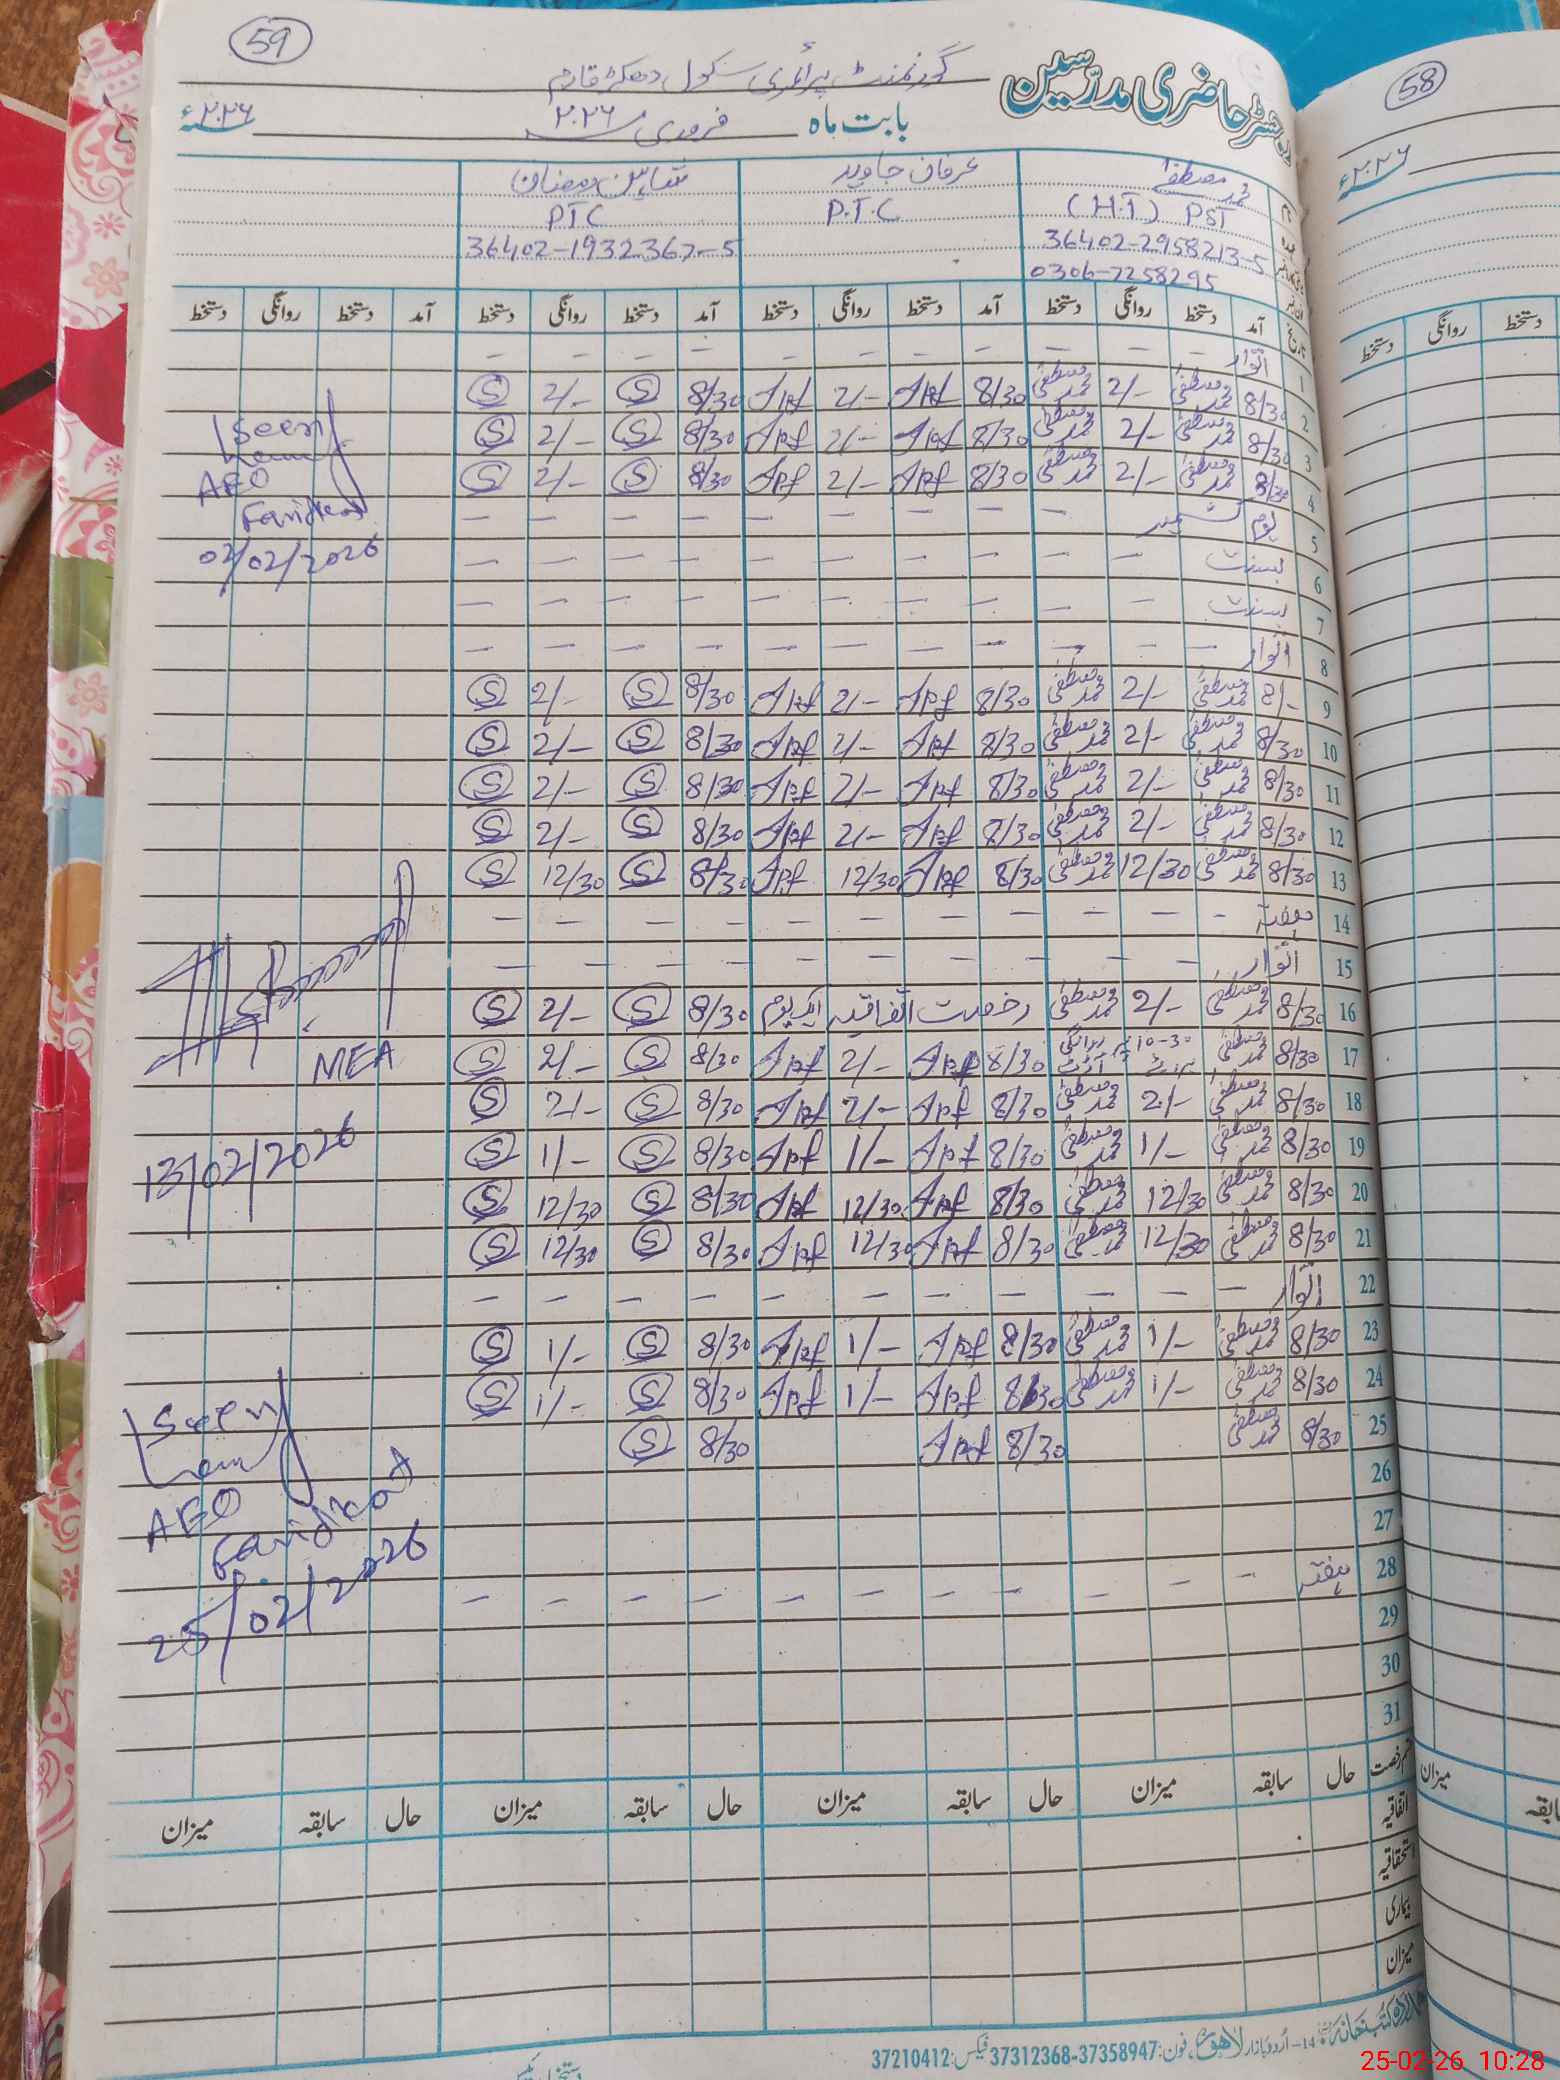 59
رجسٹر حاضری مدرسین
گورنمنٹ پرائمری سکول دھکڑ
بابت ماہ فروری ۲۰۲۶ ۲۰۲۶ء
محمد مصطفیٰ عرفان جاوید شاہین رمضان
(H.T) PST P.T.C PTC
36402-2958213-5 36402-1932367-5
0306-7258295
تاریخ آمد دستخط روانگی دستخط آمد دستخط روانگی دستخط آمد دستخط روانگی دستخط آمد دستخط روانگی دستخط
1 اتوار - - - - - - - - - - -
2 8/30 محمد مصطفیٰ 2/- محمد مصطفیٰ 8/30 2/- 8/30 S 2/- S
3 8/30 محمد مصطفیٰ 2/- محمد مصطفیٰ 8/30 2/- 8/30 S 2/- S
4 8/30 محمد مصطفیٰ 2/- محمد مصطفیٰ 8/30 2/- 8/30 S 2/- S
5 یوم کشمیر - - - - - - - - -
6 بسنت - - - - - - - - - -
7 بسنت - - - - - - - - - -
8 اتوار - - - - - - - - - - -
9 8/- محمد مصطفیٰ 2/- محمد مصطفیٰ 8/30 2/- 8/30 S 2/- S
10 8/30 محمد مصطفیٰ 2/- محمد مصطفیٰ 8/30 2/- 8/30 S 2/- S
11 8/30 محمد مصطفیٰ 2/- محمد مصطفیٰ 8/30 2/- 8/30 S 2/- S
12 8/30 محمد مصطفیٰ 2/- محمد مصطفیٰ 8/30 2/- 8/30 S 2/- S
13 8/30 محمد مصطفیٰ 12/30 محمد مصطفیٰ 8/30 12/30 8/30 S 12/30 S
14 ہفتہ - - - - - - - - - - -
15 اتوار - - - - - - - - - - -
16 8/30 محمد مصطفیٰ 2/- محمد مصطفیٰ رخصت اتفاقیہ ایک یوم 8/30 S 2/- S
17 8/30 محمد مصطفیٰ 10-30 پر روانگی برائے آڈٹ 8/30 2/- 8/30 S 2/- S
18 8/30 محمد مصطفیٰ 2/- محمد مصطفیٰ 8/30 2/- 8/30 S 2/- S
19 8/30 محمد مصطفیٰ 1/- محمد مصطفیٰ 8/30 1/- 8/30 S 1/- S
20 8/30 محمد مصطفیٰ 12/30 محمد مصطفیٰ 8/30 12/30 8/30 S 12/30 S
21 8/30 محمد مصطفیٰ 12/30 محمد مصطفیٰ 8/30 12/30 8/30 S 12/30 S
22 اتوار - - - - - - - - - - -
23 8/30 محمد مصطفیٰ 1/- محمد مصطفیٰ 8/30 1/- 8/30 S 1/- S
24 8/30 محمد مصطفیٰ 1/- محمد مصطفیٰ 8/30 1/- 8/30 S 1/- S
25 8/30 محمد مصطفیٰ 8/30 8/30 S
26
27
28 ہفتہ - - - - - - - - - - -
29
30
31
Seen
AEO
Faridkot
02/02/2026
MEA
13/02/2026
Seen
AEO
Faridkot
25/02/2026
قسم رخصت حال سابقہ میزان حال سابقہ میزان حال سابقہ میزان حال سابقہ میزان
اتفاقیہ
استحقاقیہ
بیماری
میزان
کتب خانہ 14-اُردو بازار لاہور، فون: 37358947-37312368 فیکس: 37210412
58
۲۰۲۶ء
دستخط روانگی دستخط
میزان سابقہ
25-02-26 10:28